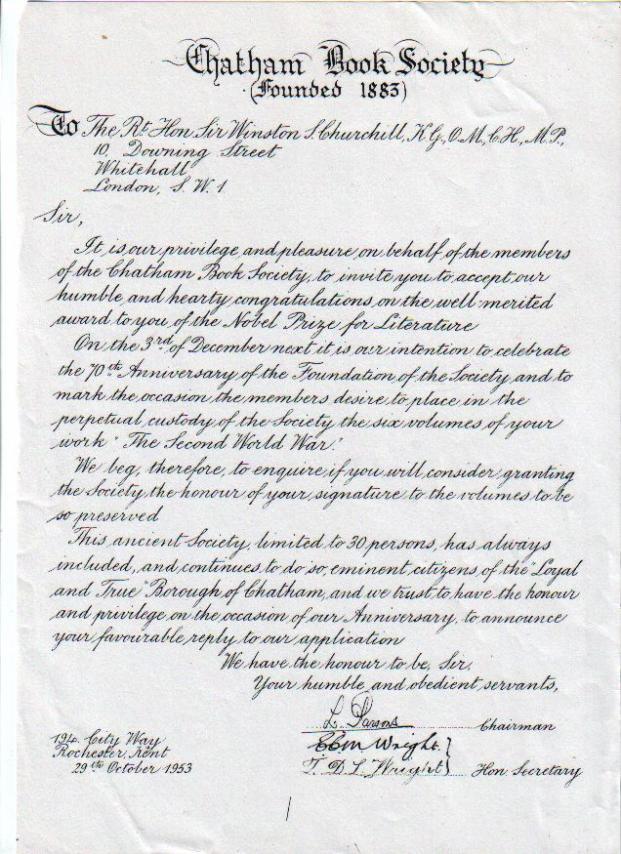 Chatham Book Society
(Founded 1883)
To The Rt. Hon Sir Winston S. Churchill, K.G., O.M., C.H., M.P.,
10, Downing Street
Whitehall,
London, S.W.1
Sir,
It is our privilege and pleasure on behalf of the members
of the Chatham Book Society, to invite you to accept our
humble and hearty congratulations, on the well-merited
award to you, of the Nobel Prize for Literature
On the 3rd of December next it is our intention to celebrate
the 70th Anniversary of the Foundation of the Society and to
mark the occasion the members desire to place in the
perpetual custody of the Society the six volumes of your
work "The Second World War."
We beg, therefore, to enquire if you will consider granting
the Society the honour of your signature to the volumes to be
so preserved
This ancient Society, limited to 30 persons, has always
included, and continues to do so, eminent citizens of the "Loyal
and True" Borough of Chatham, and we trust to have the honour
and privilege, on the occasion of our Anniversary, to announce
your favourable reply to our application
We have the honour to be, Sir,
Your humble and obedient servants,
L. Parsons Chairman
EEM Wright }
T. D. L. Wright } Hon. Secretary
194. City Way
Rochester, Kent
29th October 1953